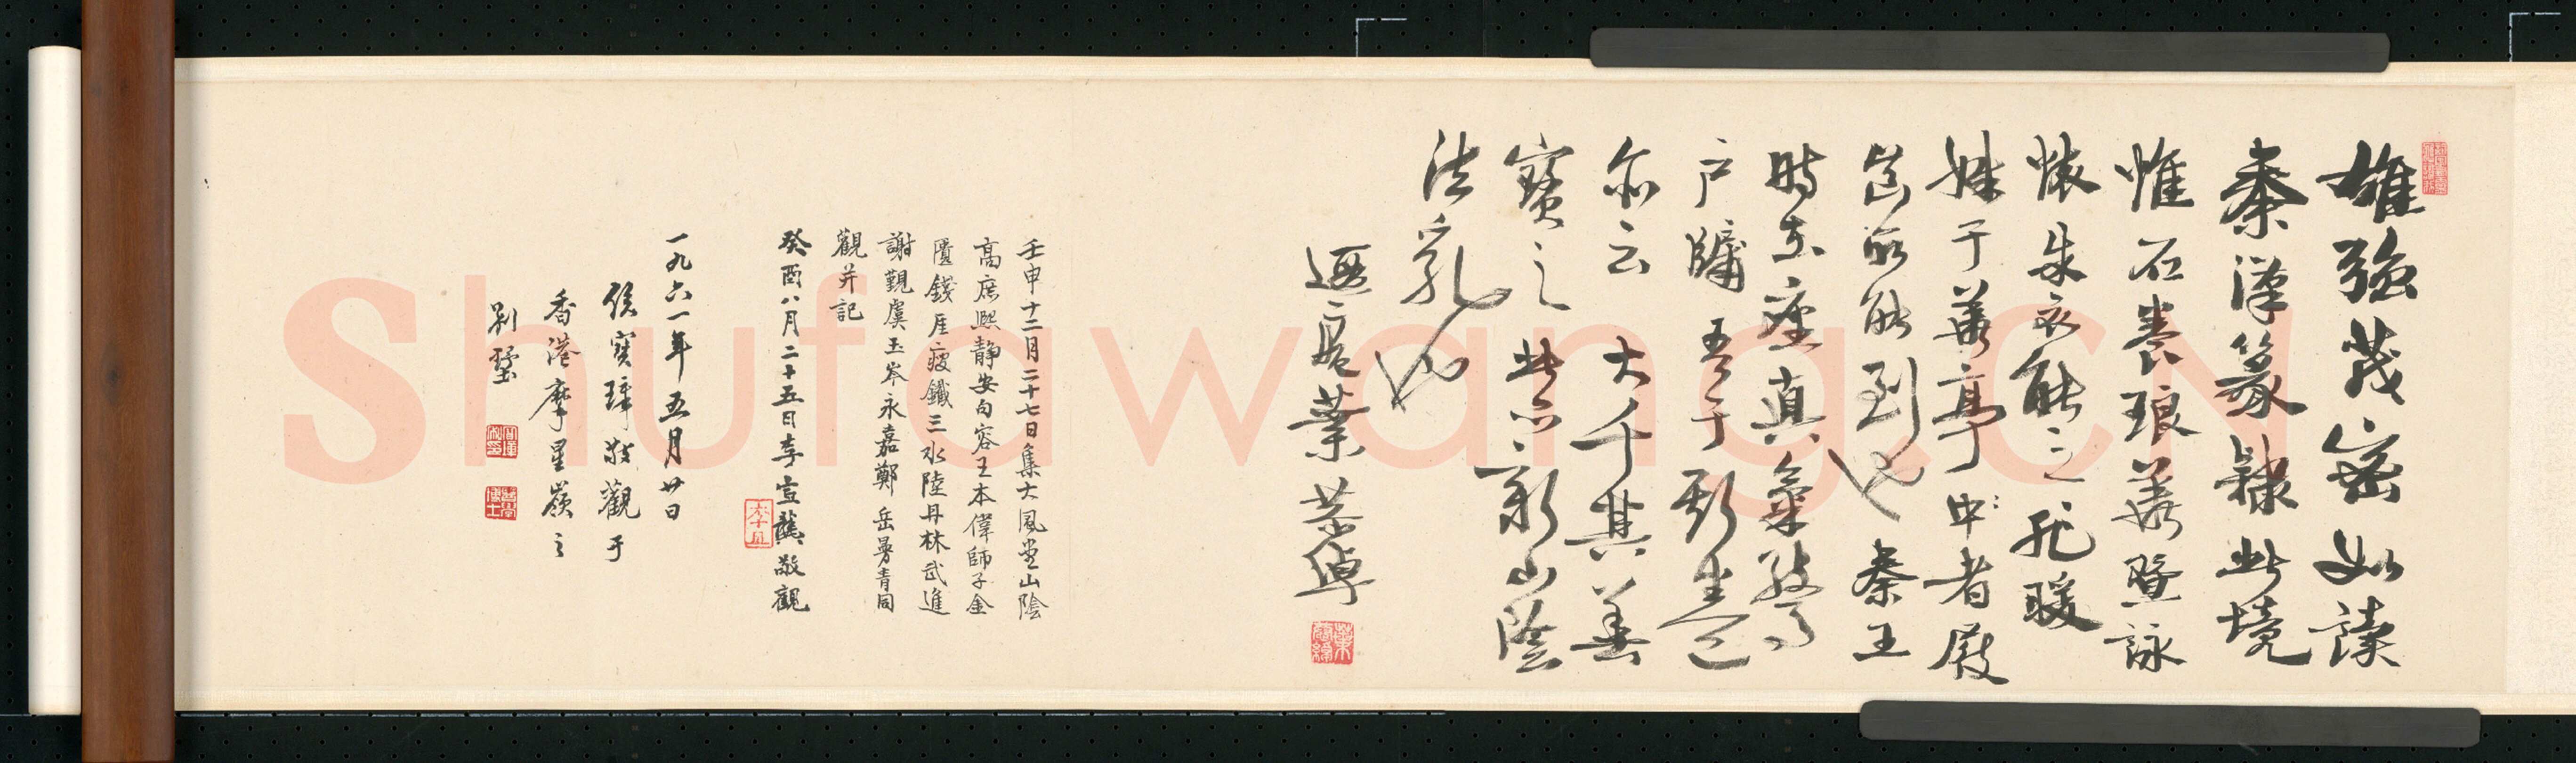 雄強茂密如讀
秦漢篆隸此境
惟石養琅善暨詠
懷朱衣能之
姝于善亭中者殿
前能到也秦王
時真氣
戶牖吾于斯
尒云大千其善
寶之此亦新山陰
法乳也
遐庵葉恭綽
壬申十二月二十七日集大風堂山陰
高庶熙靜安向容王本偉師子金
匱錢厓瘦鐵三水陸丹林武進
謝覲虞玉岑永嘉鄭岳曼青同
觀并記
癸酉八月二十五日李宣龔敬觀
一九六一年五月廿日
侯寶璋敬觀于
香港摩星嶺之
別墅
Shufawang.CN